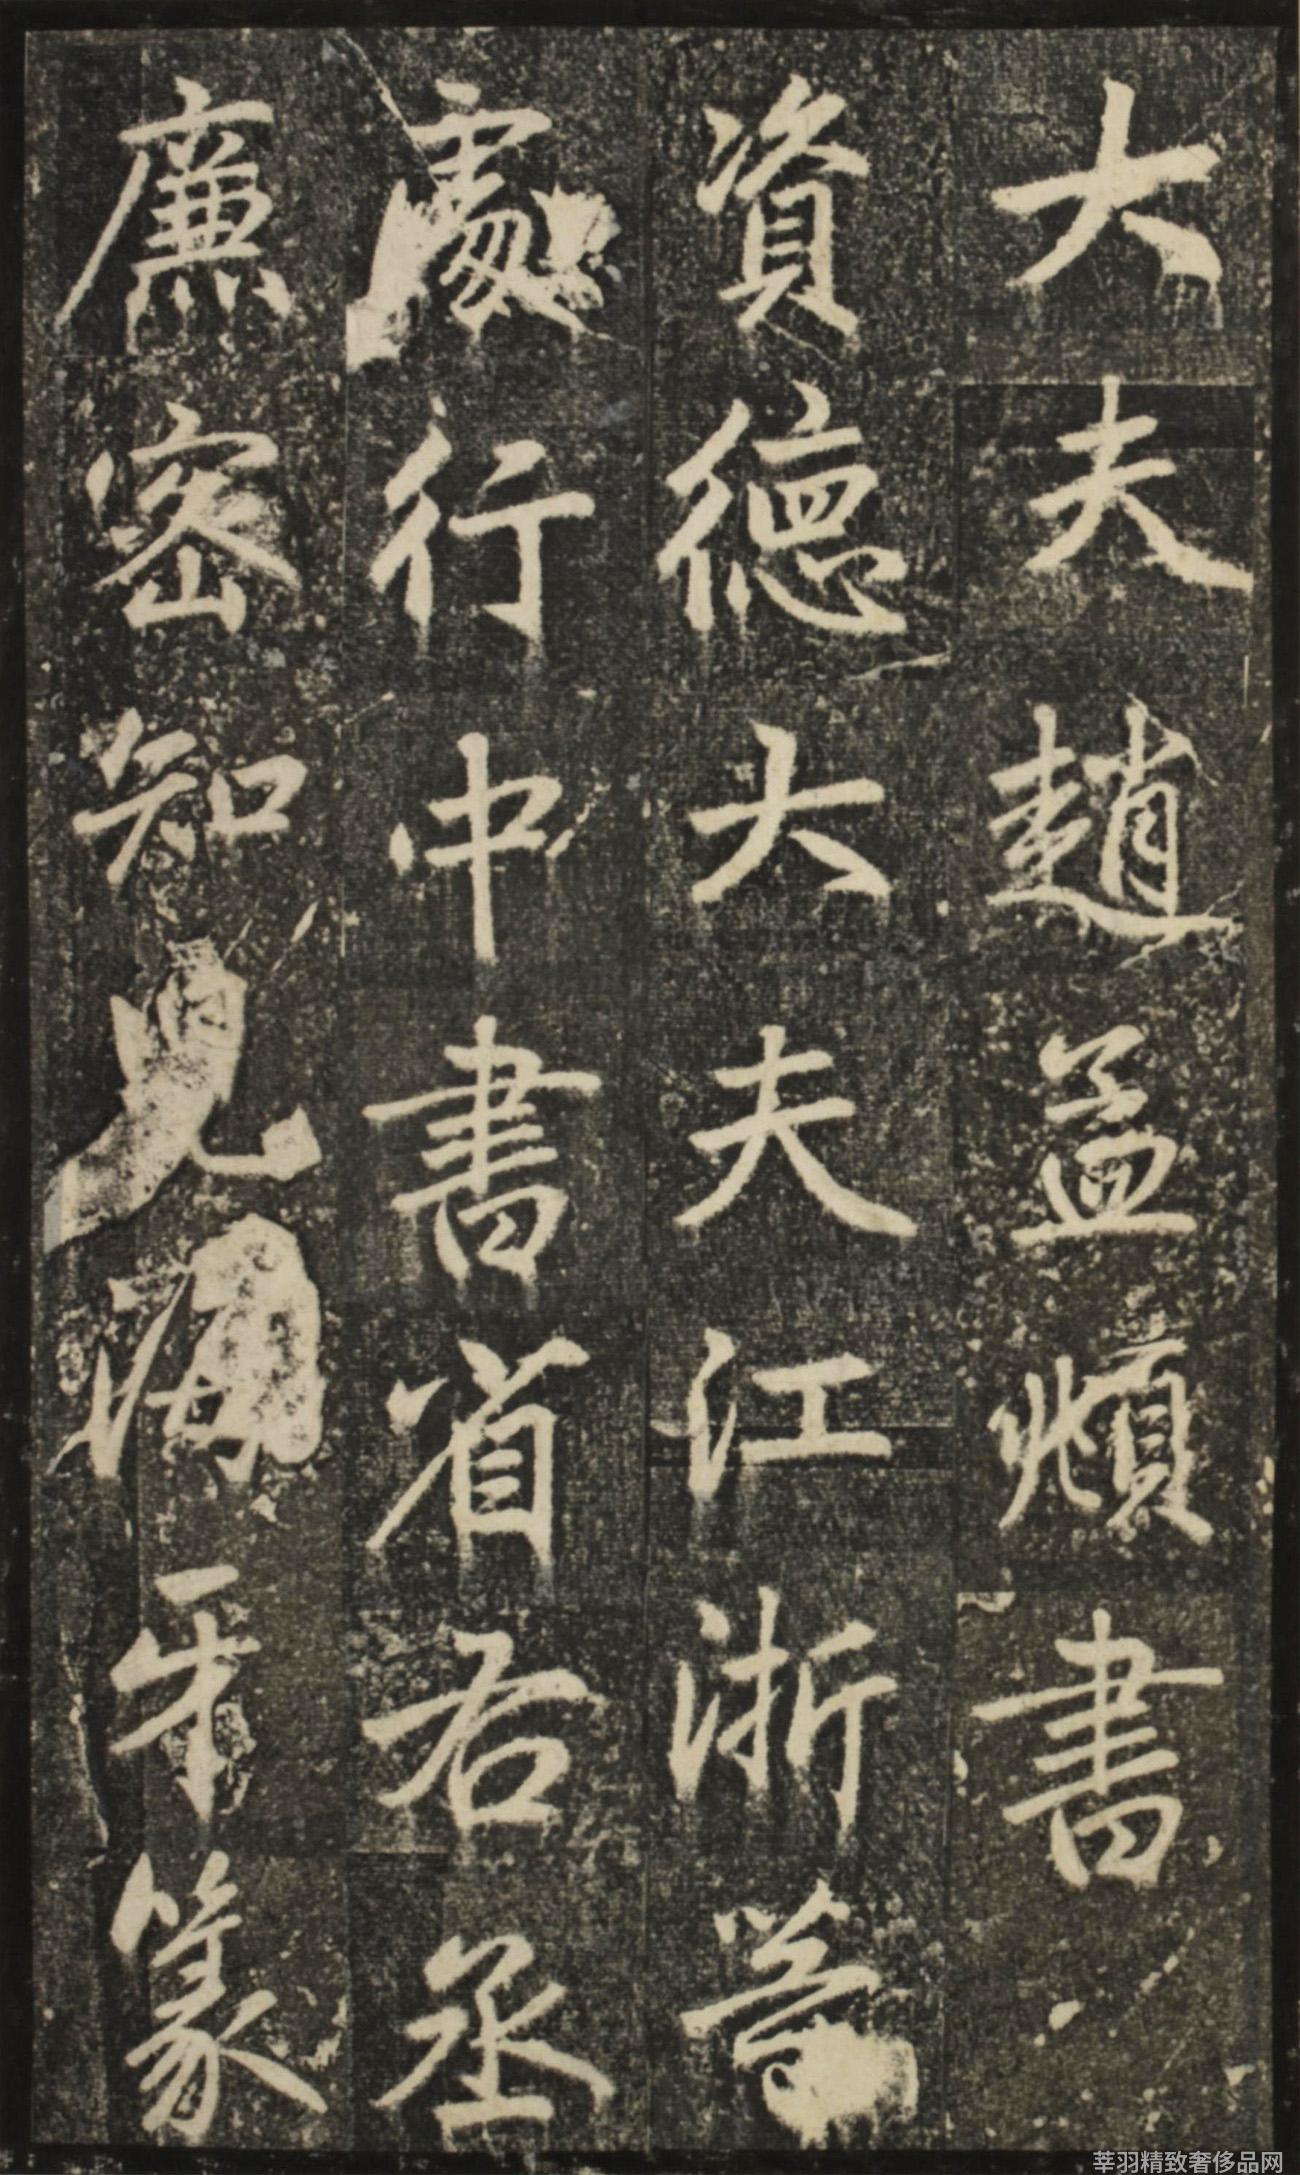 大夫趙孟頫書
資德大夫江浙等
處行中書省右丞
廉密知兒海牙篆
莘羽精致奢侈品网